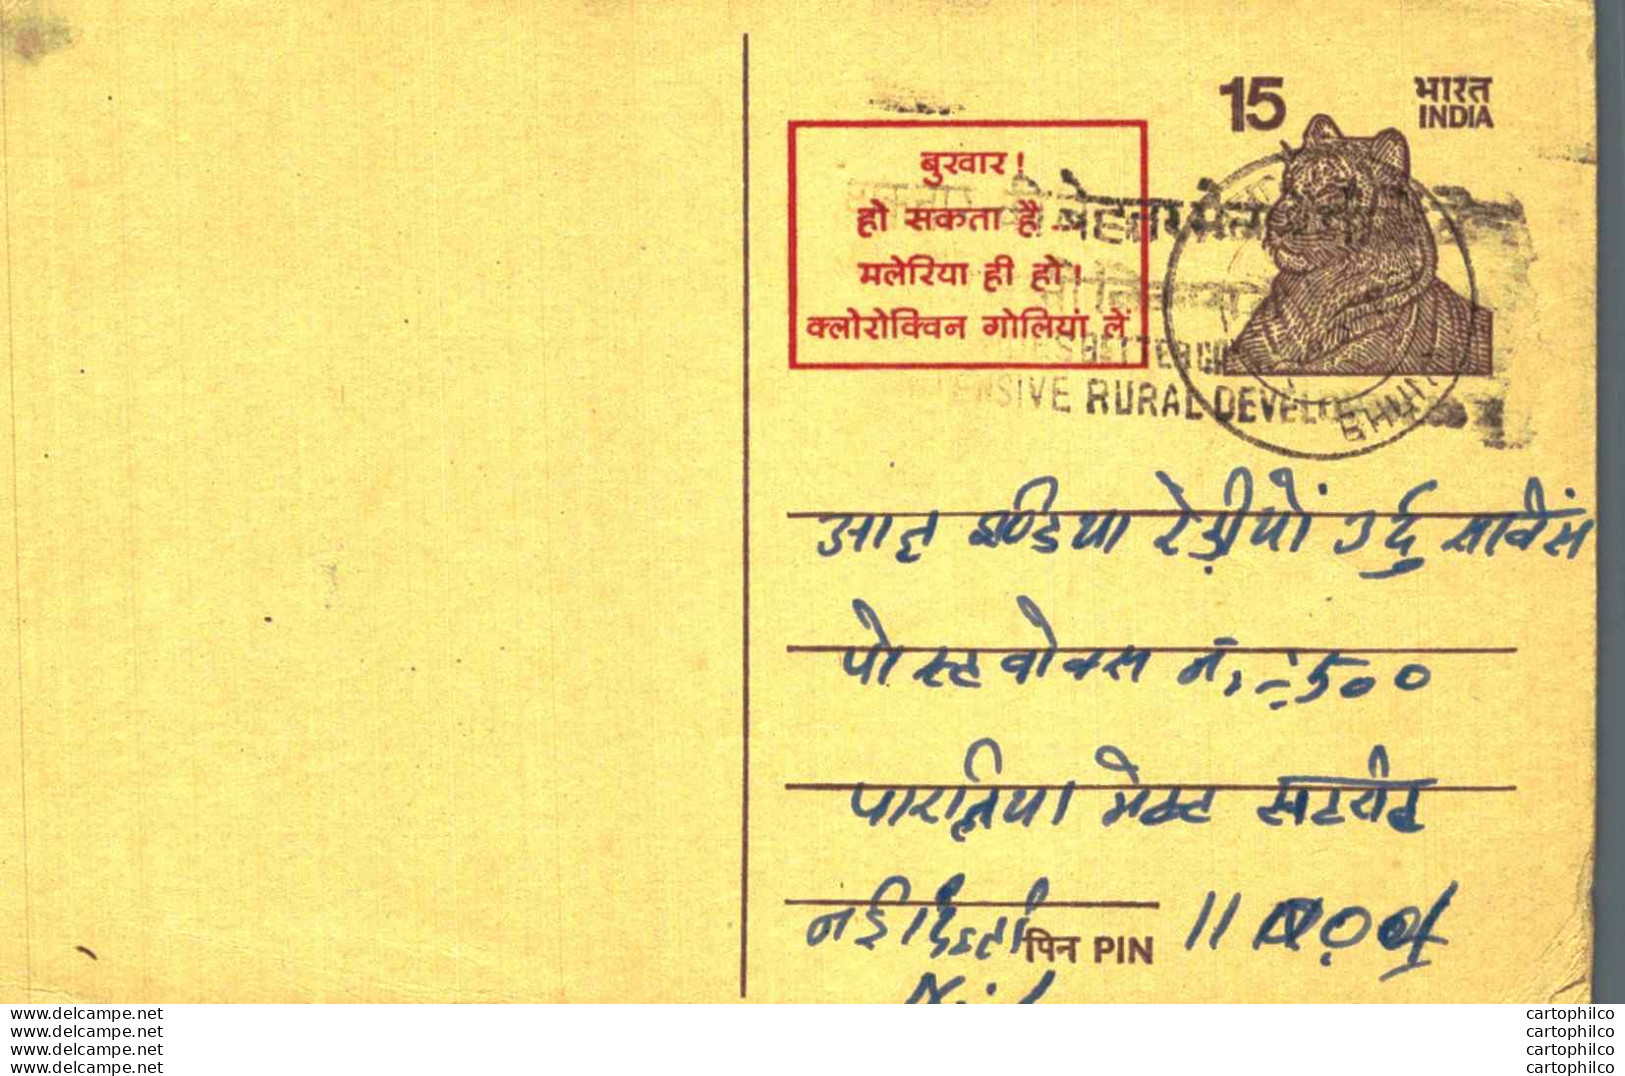 15 भारत
INDIA
बुखार!
हो सकता है ..
मलेरिया ही हो!
क्लोरोक्विन गोलियां लें
बेहतर
BETTER
ENSIVE RURAL DEVELO
BHU
आल इण्डिया रेड़ीयों उर्दु सार्वस
पोस्ट बोक्स नं. :- 500
पारलिया मेन्ट सटरीट
नई दिल्ली
पिन PIN
www.delcampe.net
www.delcampe.net
www.delcampe.net
www.delcampe.net
cartophilco
cartophilco
cartophilco
cartophilco